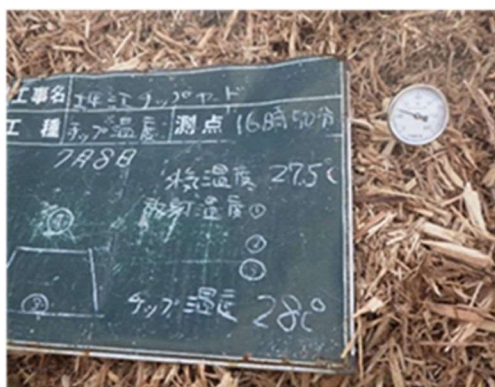 工事名 チップヤード
工種 チップ温度 測点 16時50分
7月8日
外気温度 27.5℃
温度①
①
②
①
②
チップ温度 28℃